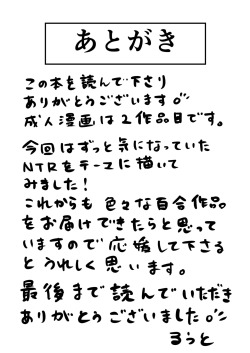 あとがき
この本を読んで下さり
ありがとうございます。
成人漫画は2作品目です。
今回はずっと気になっていた
NTRをテーマに描いて
みました！
これからも色々な百合作品
をお届けできたらと思って
いますので応援して下さる
とうれしく思います。
最後まで読んでいただき
ありがとうございました。
るうと